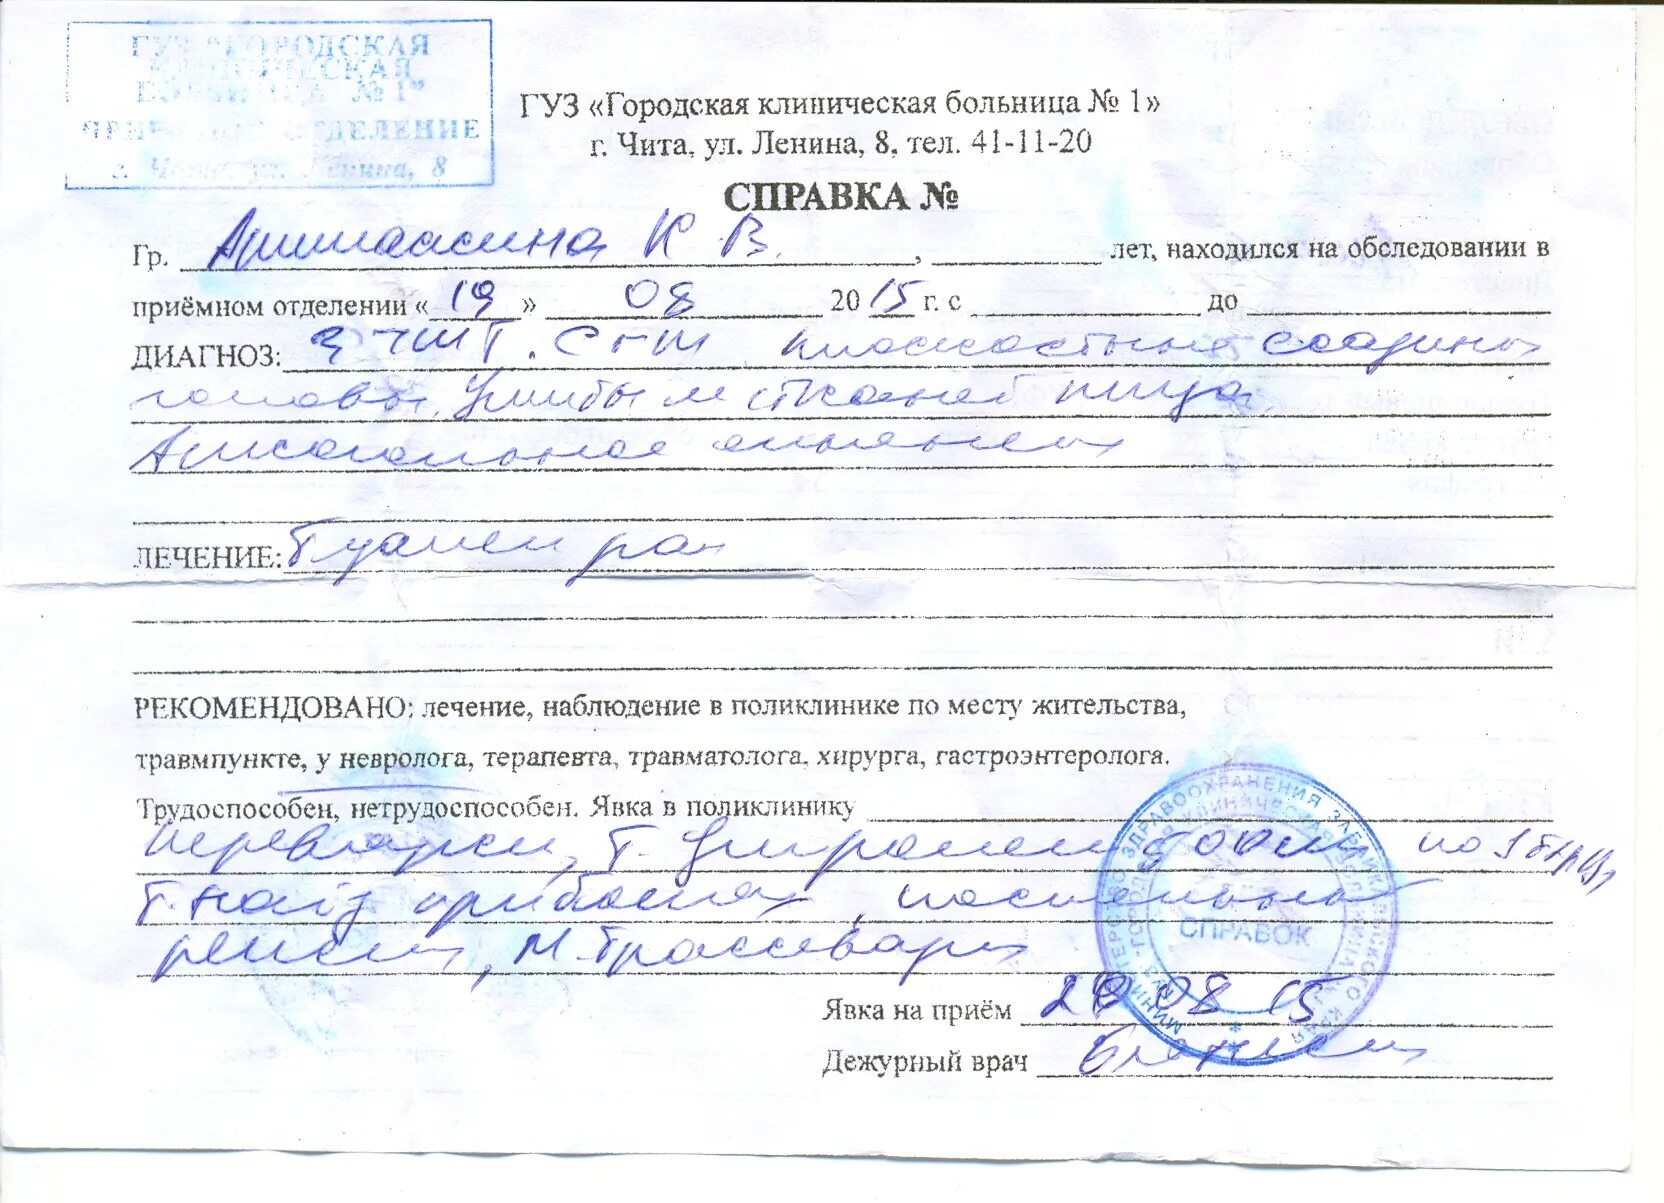 ГУЗ "ГОРОДСКАЯ
КЛИНИЧЕСКАЯ
БОЛЬНИЦА № 1"
ПРИЁМНОЕ ОТДЕЛЕНИЕ
г. Чита, ул. Ленина, 8
ГУЗ «Городская клиническая больница № 1»
г. Чита, ул. Ленина, 8, тел. 41-11-20
СПРАВКА №
Гр. К В. , лет, находился на обследовании в
приёмном отделении « 19 » 08 2015 г. с до
ДИАГНОЗ: ЗЧМТ. СГМ плоскостные ссадины
головы. Ушибы м тканей лица.
Алкогольное опьянение
ЛЕЧЕНИЕ: Туалет ран
РЕКОМЕНДОВАНО: лечение, наблюдение в поликлинике по месту жительства,
травмпункте, у невролога, терапевта, травматолога, хирурга, гастроэнтеролога.
Трудоспособен, нетрудоспособен. Явка в поликлинику
Перевязки, т. по 1т
т. при болях, постельный
режим,
Явка на приём 20 08 15
Дежурный врач
МИНИСТЕРСТВО ЗДРАВООХРАНЕНИЯ ЗАБАЙКАЛЬСКОГО КРАЯ
СПРАВОК